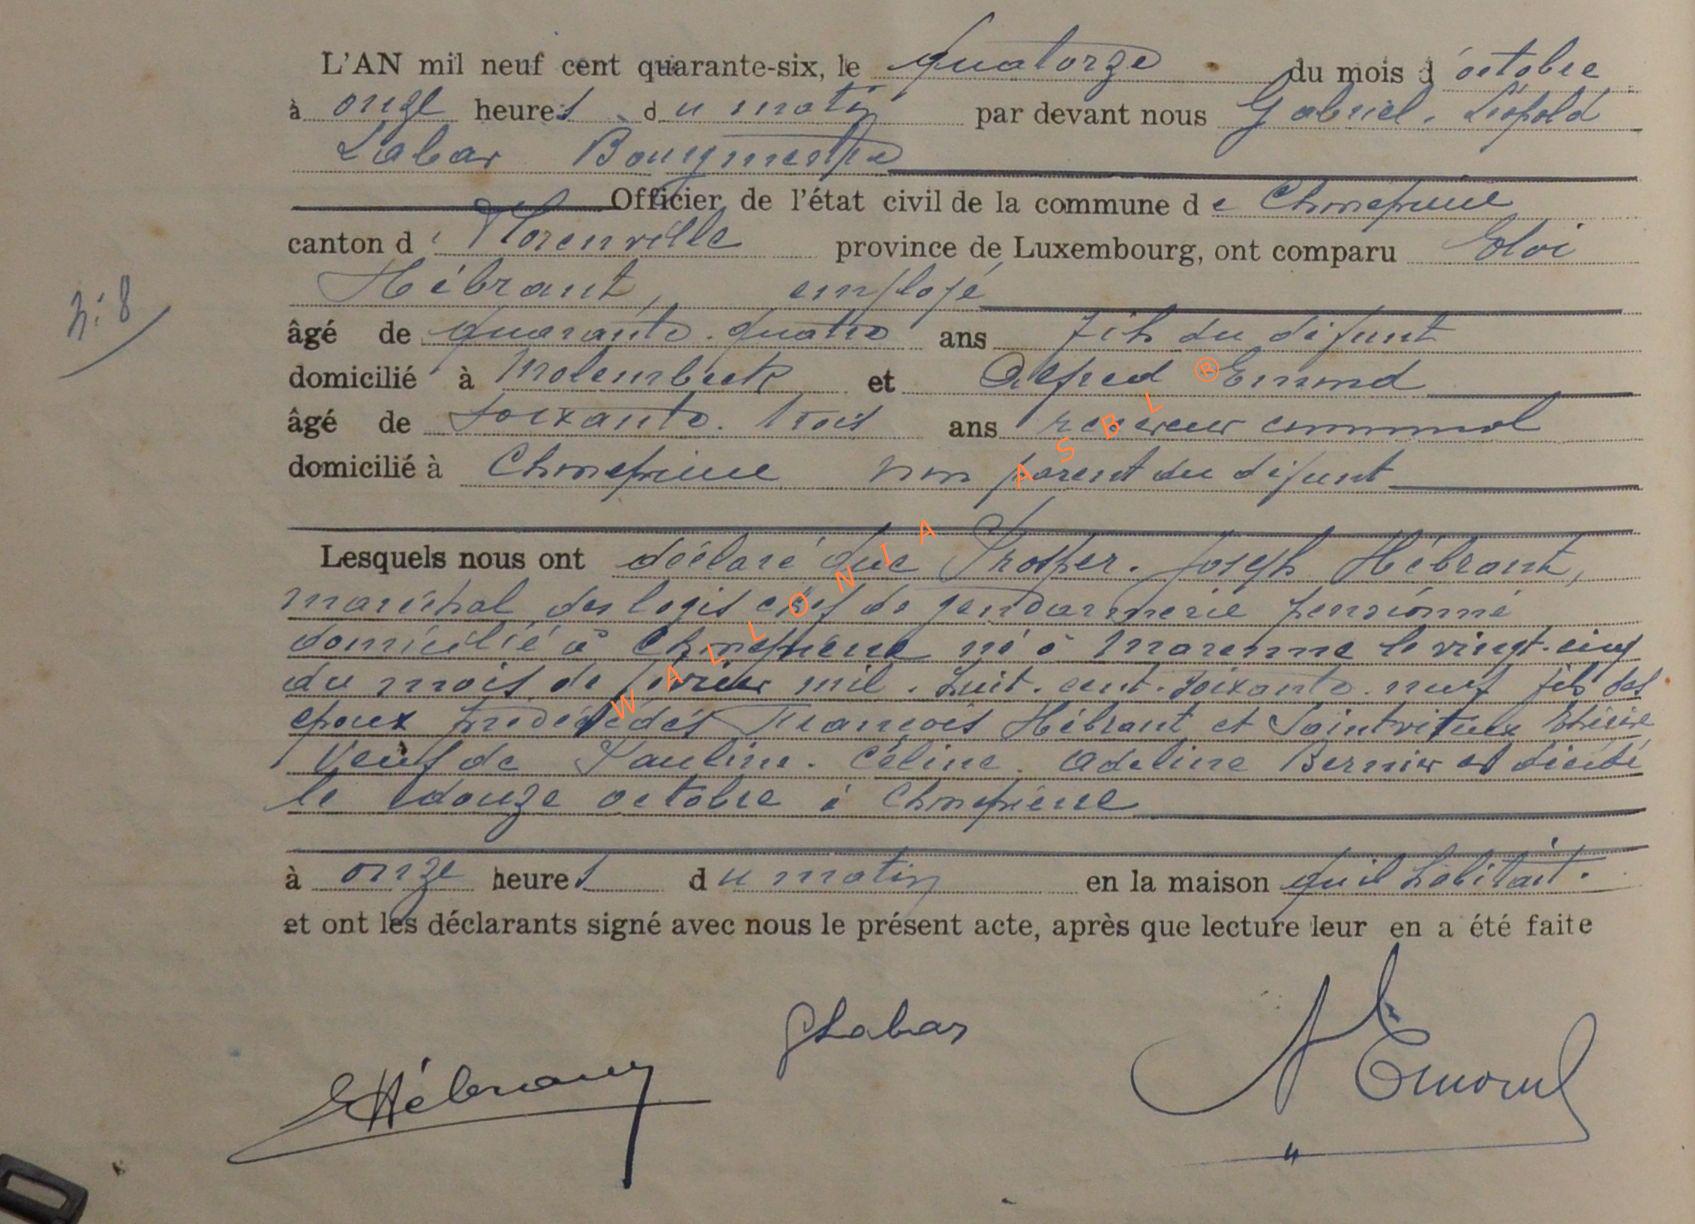 L'AN mil neuf cent quarante-six, le quatorze du mois d'octobre
à onze heures du matin par devant nous Gabriel-Léopold
Labar Bourgmestre
Officier de l'état civil de la commune de Chassepierre
canton de Florenville province de Luxembourg, ont comparu Eloi
Hébrant, employé
âgé de quarante-quatre ans fils du défunt
domicilié à Molenbeek et Alfred Emond
âgé de soixante-trois ans receveur communal
domicilié à Chassepierre non parent du défunt
N: 8
Lesquels nous ont déclaré que Prosper-Joseph Hébrant,
maréchal des logis chef de gendarmerie pensionné
domicilié à Chassepierre né à Marenne le vingt-cinq
du mois de février mil-huit-cent-soixante-neuf fils des
époux prédécédés François Hébrant et
Veuf de Pauline-Céline-Adeline Bernier est décédé
le douze octobre à Chassepierre
à onze heures du matin en la maison qu'il habitait.
et ont les déclarants signé avec nous le présent acte, après que lecture leur en a été faite
GLabar
EHébrant
A Emond
WALLONIA ASBL ®